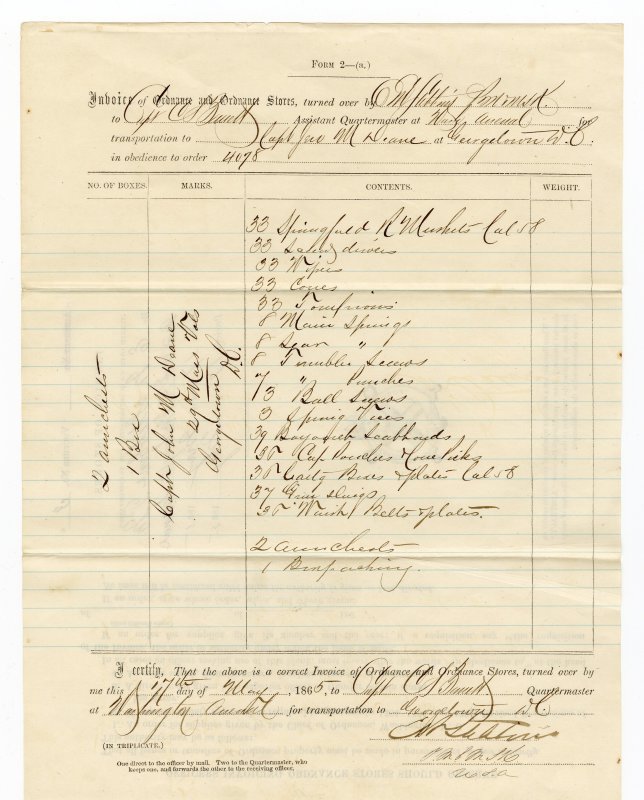 FORM 2—(a.)
Invoice of Ordnance and Ordnance Stores, turned over by
to Capt Assistant Quartermaster at Wash Arsenal for
transportation to Capt Jno M Deane at Georgetown D.C.
in obedience to order 4078
NO. OF BOXES. MARKS. CONTENTS. WEIGHT.
2 armchests
1 Box
Capt John M Deane
29th Mass Vols
Georgetown
D.C.
33 Springfield R Muskets Cal 58
33 Screwdrivers
33 Wipers
33 Cones
33 Tompions
8 Main Springs
8 Sear "
8 Tumbler Screws
7 " Punches
13 Ball Screws
3 Spring Vises
39 Bayonet Scabbards
Cap Pouches & Cone Picks
Cartg Boxes & plates Cal 58
37 Gun slings
Waist Belts & plates.
2 armchests
1 Box packing.
I certify, That the above is a correct Invoice of Ordnance and Ordnance Stores, turned over by
me this 17th day of May, 1865, to Capt Quartermaster
at Washington Arsenal for transportation to Georgetown D.C.
(IN TRIPLICATE.)
One direct to the officer by mail. Two to the Quartermaster, who
keeps one, and forwards the other to the receiving officer.